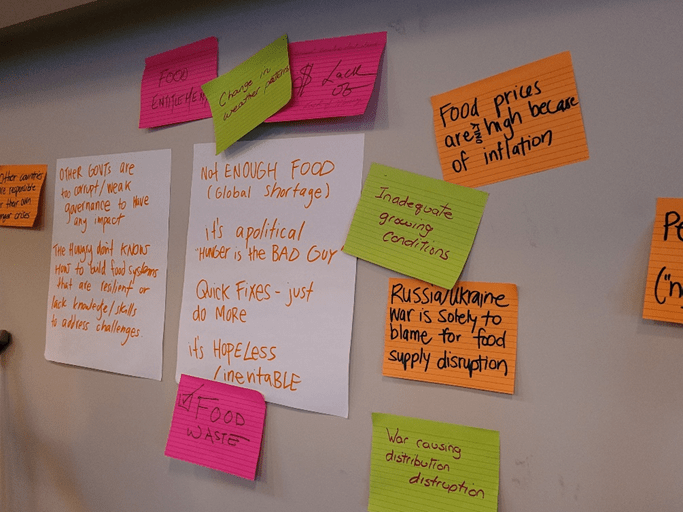 FOOD
ENTITLEMENT
Change in
weather patterns
$ Lack
of
Food prices
are too high because
of inflation
Other countries
are responsible
for their own
hunger crises
OTHER GOVTS are
too corrupt/weak
governance to have
any impact
THE HUNGRY don't KNOW
HOW to build food systems
that are resilient or
lack knowledge/skills
to address challenges.
Not ENOUGH FOOD
(Global shortage)
it's apolitical
"HUNGER is the BAD GUY
QUICK FIXES - just
do MORE
it's HOPELESS
/inentABLE
Inadequate
growing
conditions
Russia/Ukraine
war is solely to
blame for food
supply disruption
FOOD
WASTE
War causing
distribution
distruption
("n